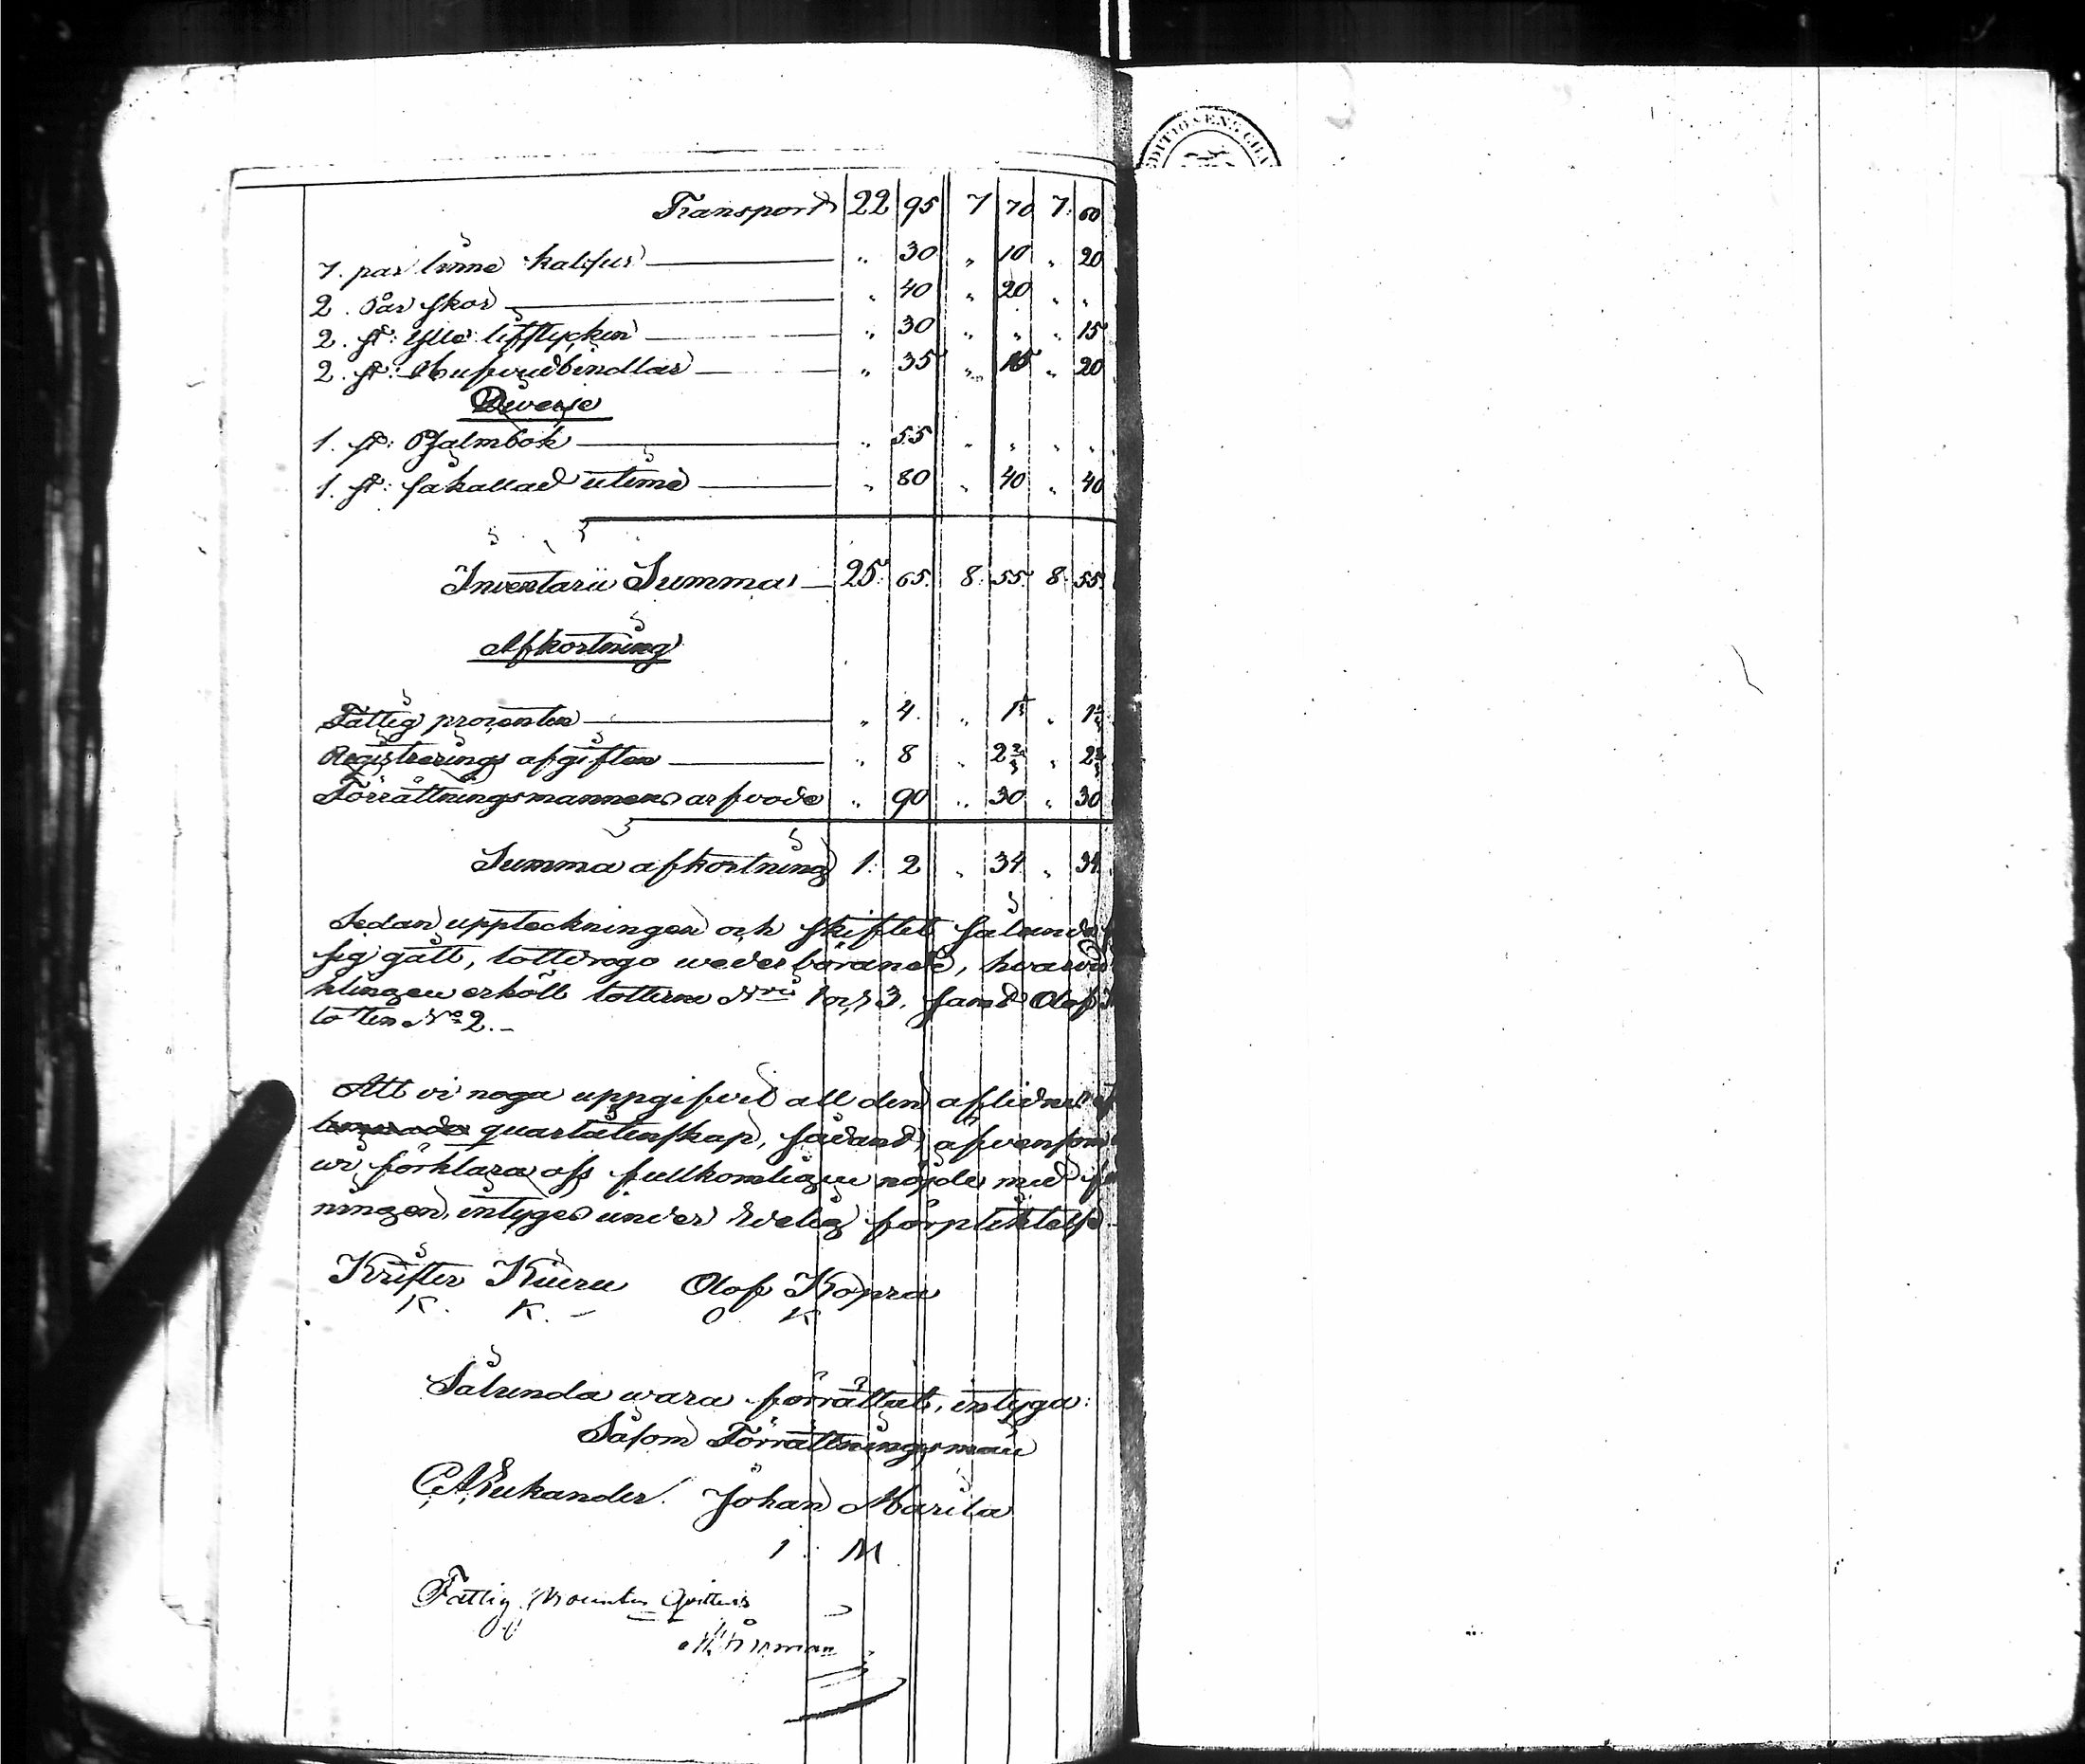 Transport 22 95 7 70 7. 60
7. par linne kalsus — " 30 " 10 " 20
2. Par skor — " 40 " 20 " "
2. st: Ylle lifstycken — " 30 " " " 15
2. st: Hufvudbindlar — " 35 " 15 " 20
Diverse
1. st: Psalmbok — " 55 " " " "
1. st: såkallad — " 80 " 40 " 40
Inventarii Summa — 25. 65. 8. 55. 8. 55.
Afkortning
Fattig procenten — " 4. " 1⅓ " 1⅓
Registrerings afgiften — " 8 " 2⅔ " 2⅔
Förrättningsmannens arfvode " 90 " 30 " 30
Summa afkortning 1. 2 " 34 " 34.
Sedan uppteckningen och skiftet sålunda
sig gått, lottdrogo wederbörande, hvarvid
klingen erhöll lotterne Nris 1 och 3. samt Olof
lotten No 2.-
Att vi noga uppgifvit all den aflidnes
quarlåtenskap, sådand, äfvensom
wi förklara oss fullkomligen nöjde med
ningen, intyges under edelig förpliktelse.
Krister Kiuru Olof Kopra
K. K. - O K
Sålunda wara förrättat, intyga:
Såsom Förrättningsmän
Johan Marila
I. M
Fattig Procenten Qvitteras